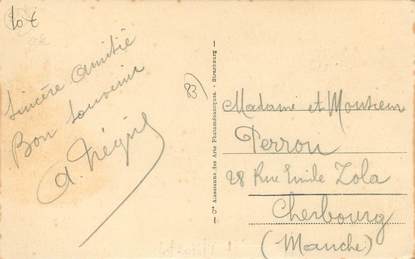 10€
Sincère amitié
Bon souvenir
83)
Cie Alsacienne des Arts Photomécaniques - Strasbourg
Madame et Monsieur
Perrou
28 Rue Emile Zola
Cherbourg
(Manche)